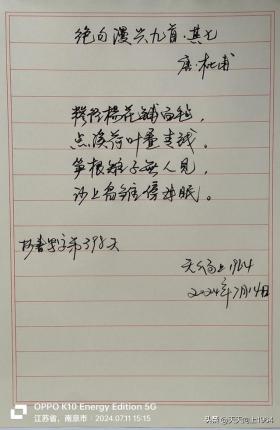 绝句漫兴九首·其七
唐·杜甫
糁径杨花铺白毡，
点溪荷叶叠青钱。
笋根雉子无人见，
沙上凫雏傍母眠。
抄书写字第398天
天天向上1964
2024年7月11日
OPPO K10 Energy Edition 5G
江苏省，南京市 | 2024.07.11 15:15
头条 @天天向上1964